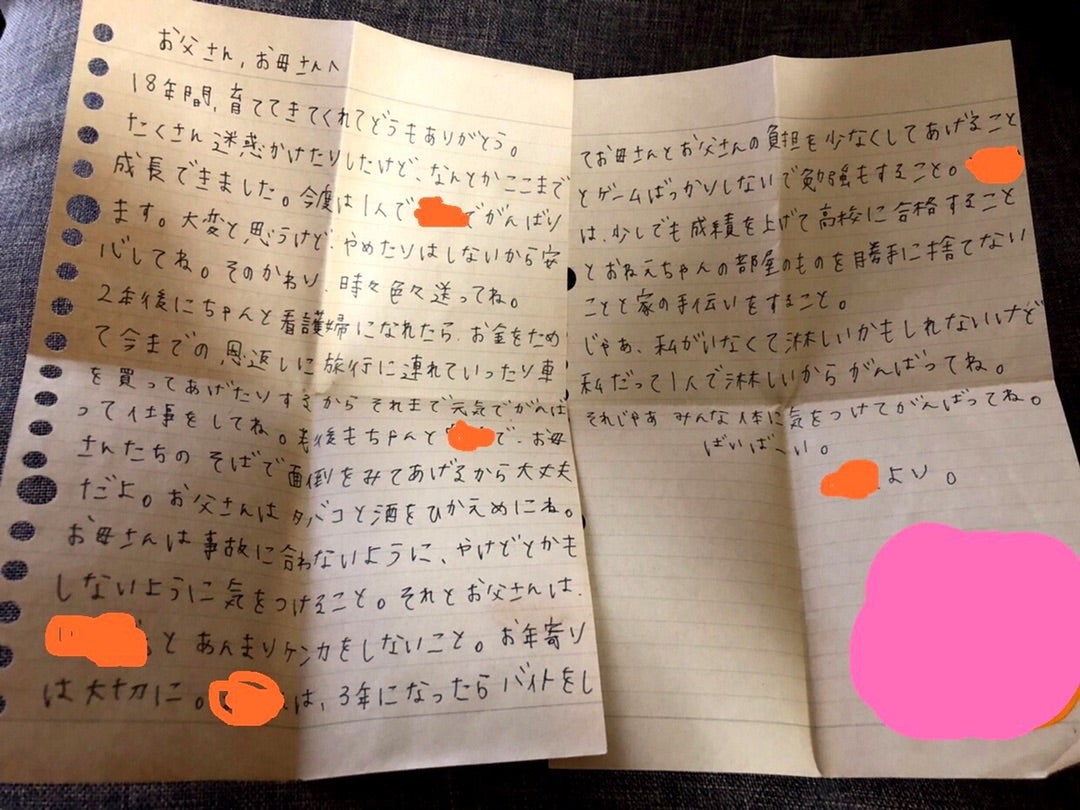 お父さん,お母さんへ
18年間,育ててきてくれてどうもありがとう。
たくさん迷惑かけたりしたけど、なんとかここまで
成長できました。今度は1人で でがんばり
ます。大変と思うけど、やめたりはしないから安
心してね。そのかわり、時々色々送ってね。
2年後にちゃんと看護婦になれたら、お金をため
て今までの恩返しに旅行に連れていったり車
を買ってあげたりするからそれまで元気でがんば
って仕事をしてね。老後もちゃんと で、お母
さんたちのそばで面倒をみてあげるから大丈夫
だよ。お父さんはタバコと酒をひかえめにね。
お母さんは事故に合わないように、やけどとかも
しないように気をつけること。それとお父さんは、
とあんまりケンカをしないこと。お年寄り
は大切に。 は、3年になったらバイトをし
てお母さんとお父さんの負担も少なくしてあげること
とゲームばっかりしないで勉強もすること。
は、少しでも成績を上げて高校に合格すること
とおねえちゃんの部屋のものを勝手に捨てない
ことと家の手伝いをすること。
じゃあ、私がいなくて淋しいかもしれないけど
私だって1人で淋しいからがんばってね。
それじゃあみんな体に気をつけてがんばってね。
ばいばーい。
より。